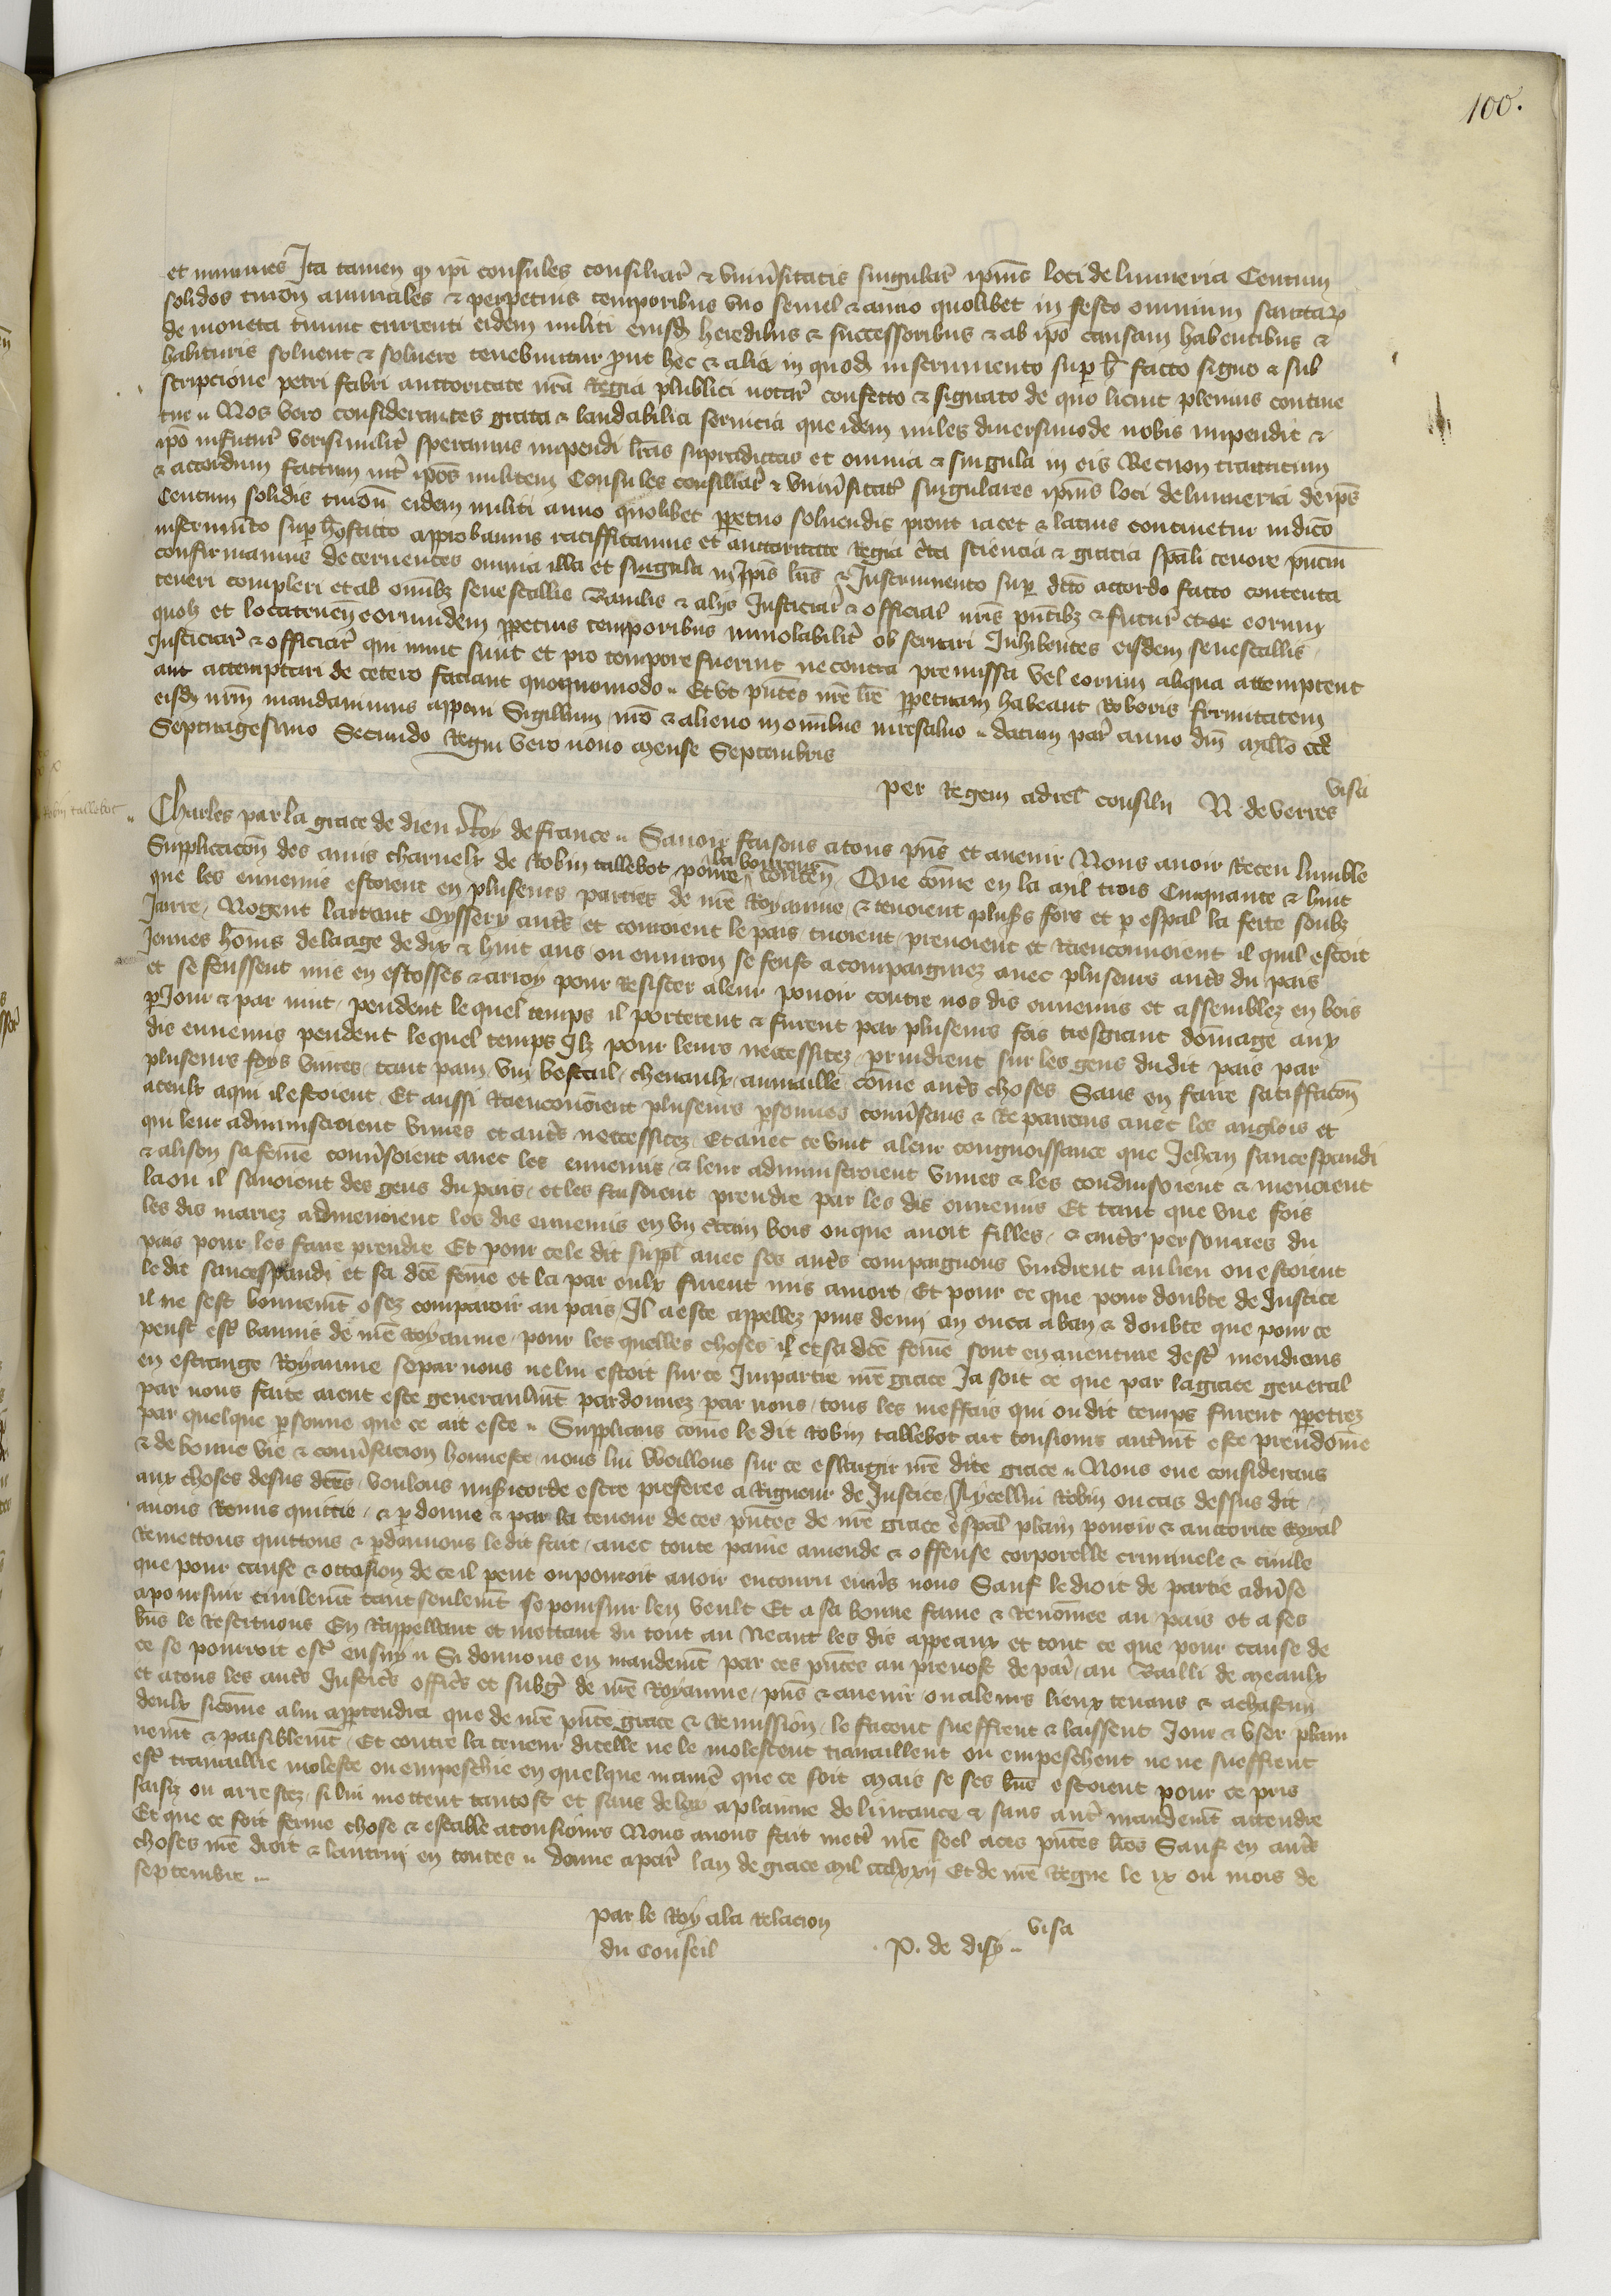 100.
et immunes Ita tamen q ipi consules consiliar & univsitatis singular ipius loci de lumeria Centum
solidos turon annuales & perpetuis temporibus uno semel & anno quolibet in festo omnium sanctar
de moneta tunc currenti eidem militi eiusd heredibus & successoribus & ab ipo causam habentibus &
habituris solvent & solvere tenebuntur prout hec & alia in quod instrumento sup h facto signo & sub
scripcione petri fabri auctoritate nra Regia plublici notar confecto & signato de quo licuit plenius contine
tur Nos vero considerantes grata & laudabilia servicia que idem miles diversimode nobis impendit &
ipo infutur verisimilit speramus impendi lras supradictas et omnia & singula in eis Necnon tractatum
& accordum factum int ipos militem Consules consiliar & univsitat singulares ipius loci de lumeria de ipis
Centum solidis turon eidem militi anno quolibet ppetuo solvendis prout iacet & latius continetur in dicto
instrumto sup hoc facto approbamus ratifficamus et auctoritate Regia cta sciencia & gracia spali tenore pncium
confirmamus decernentes omnia illa et singula in Ipis lris & Instrumento sup dco accordo facto contenta
teneri compleri et ab omibz senescallis Baiulis & alijs Justiciar & official nris pntibz & futur et eorum
quolz et locatenen eorumdem ppetuis temporibus inviolabilit observari Inhibentes eisdem senescallis
Justiciar & officiar qui nunc sunt et pro tempore fuerint ne contra premissa vel eorum aliqua attemptent
aut attemptari de cetero faciant quoquomodo Et ut pntes nre lre ppetuam habeant Roboris firmitatem
eisd nrm mandavimus apponi Sigillum nro & alieno in omibus iure salvo datum par anno dni millo ccc
Septuagesimo Secundo Regni vero novo mense Septembris
per Regem ad rel consilii N. de verres visa
Robin tallebot
Charles par la grace de dieu Roy de france Savoir faisons a tous pns et avenir Nous avoir Receu lumble
Supplicacon des amis charnelx de Robin tallebot povre laboureur conten Que come en la mil trois Cinquante & huit
que les ennemis estoient en plusieurs parties de nre Royaume & tenoient plusrs fors et p espal la ferte soubz
Jarre Nogent lartaut Oyssery autrs et couroient le pais tuoient prenoient et Raenconnoient il quil estoit
Jeunes homs de laage de dix & huit ans ou environ se feust acompaigniez avec plusieurs autrs du pais
et se feussent mis en estosses & arroy pour Resister a leur povoir contre nos dis ennemis et assemblez en bois
p Jour & par nuit pendent le quel temps il porterent & firent par plusieurs fois tresgrant domage aux
dis ennemis pendent le quel temps Ilz pour leurs neccessitez prindrent sur les gens du dit pais par
plusieurs foys vivres tant pain vin bestail chevaulx aumaille come autrs choses Sans en faire satiffacon
a ceulx a qui il estoient Et aussi Raenconoient plusieurs psonnes convsans & Reparrans avec les anglois et
qui leur administroient vivres et autrs neccessitez Et avec ce vint a leur congnoissance que Jehan sancespandi
& alison sa feme convsoient avec les ennemis & leur administroient vivres & les conduisoient & menoient
la ou il savoient des gens du pais et les faisoient prendre par les dis ennemis Et tant que une fois
les dis mariez admenoient les dis ennemis en un ctain bois ou que avoit filles & autrs personnes du
pais pour les faire prendre Et pour ce le dit suppl avec ses autrs compaignons vindrent au lieu ou estoient
le dit sancespandi et sa dce feme et la par eulx furent mis a mort Et pour ce que pour doubte de Justice
il ne sest bonnemt osez comparoir au pais Il a este appellez puis demi an en ca a ban & doubte que pour ce
peust est bannis de nre Royaume pour les quelles choses il et sa dce feme sont en aventure dest mendiens
en estrange Royaume se par nous ne lui estoit sur ce Impartie nre grace Ja soit ce que par la grace general
par nous faite aient este generaulmt pardonnez par nous tous les meffais qui ou dit temps furent ppetrez
par quelque psonne que ce ait este Supplians come le dit Robin tallebot ait tousiours autrmt este preudome
& de bonne vie & convsacion honneste nous lui Vueillons sur ce eslargir nre dite grace Nous eue consideracions
aux choses desus dctes voulans misicorde estre preferee a Rigueur de Justice A ycellui Robin ou cas dessus dit
avons Remis quictie & pdonne & par la teneur de ces pntes de nre grace espal plain povoir & auctorite Royal
Remettons quittons & pdonnons le dit fait avec toute paine amende & offense corporelle criminele & civile
que pour cause & occasion de ce il peut ou pouroit avoir encouru envs nous Sauf le droit de partie advse
a poursuir civilemt tant seulemt se poursuir len veult Et a sa bonne fame & Renomee au pais et a ses
bns le Restituons En Rappellant et mettant du tout au Neant les dis appeaux et tout ce que pour cause de
ce se pourroit est ensuy Si donnons en mandemt par ces pntes au prevost de par au Bailli de meaulx
et a tous les autrs Justicrs officrs et subgr de nre Royaume pns & avenir ou a leurs lieux tenans & a chascun
deulx sicome a lui apptendra que de nre pnte grace & Remission le facent sueffrent & laissent Joir & user plain
nemt & paisiblemt Et contre la teneur dicelle ne le molestent travaillent ou empeschent ne ne sueffrent
est travaillie moleste ou empeschie en quelque maniere que ce soit Mais se ses bns estoient pour ce pris
saisiz ou arrestez si lui mettent tantost et sans delay a plaine delivrance & sans autr mandemt attendre
Et que ce soit ferme chose & estable a tousiours Nous avons fait mettr nre seel a ces pntes lres Sauf en autrs
choses nre droit & lautrui en toutes donne a par lan de grace mil ccclxxij Et de nre Regne le ix ou mois de
septembre
par le Roy a la Relacion
du Conseil
P. de disy visa